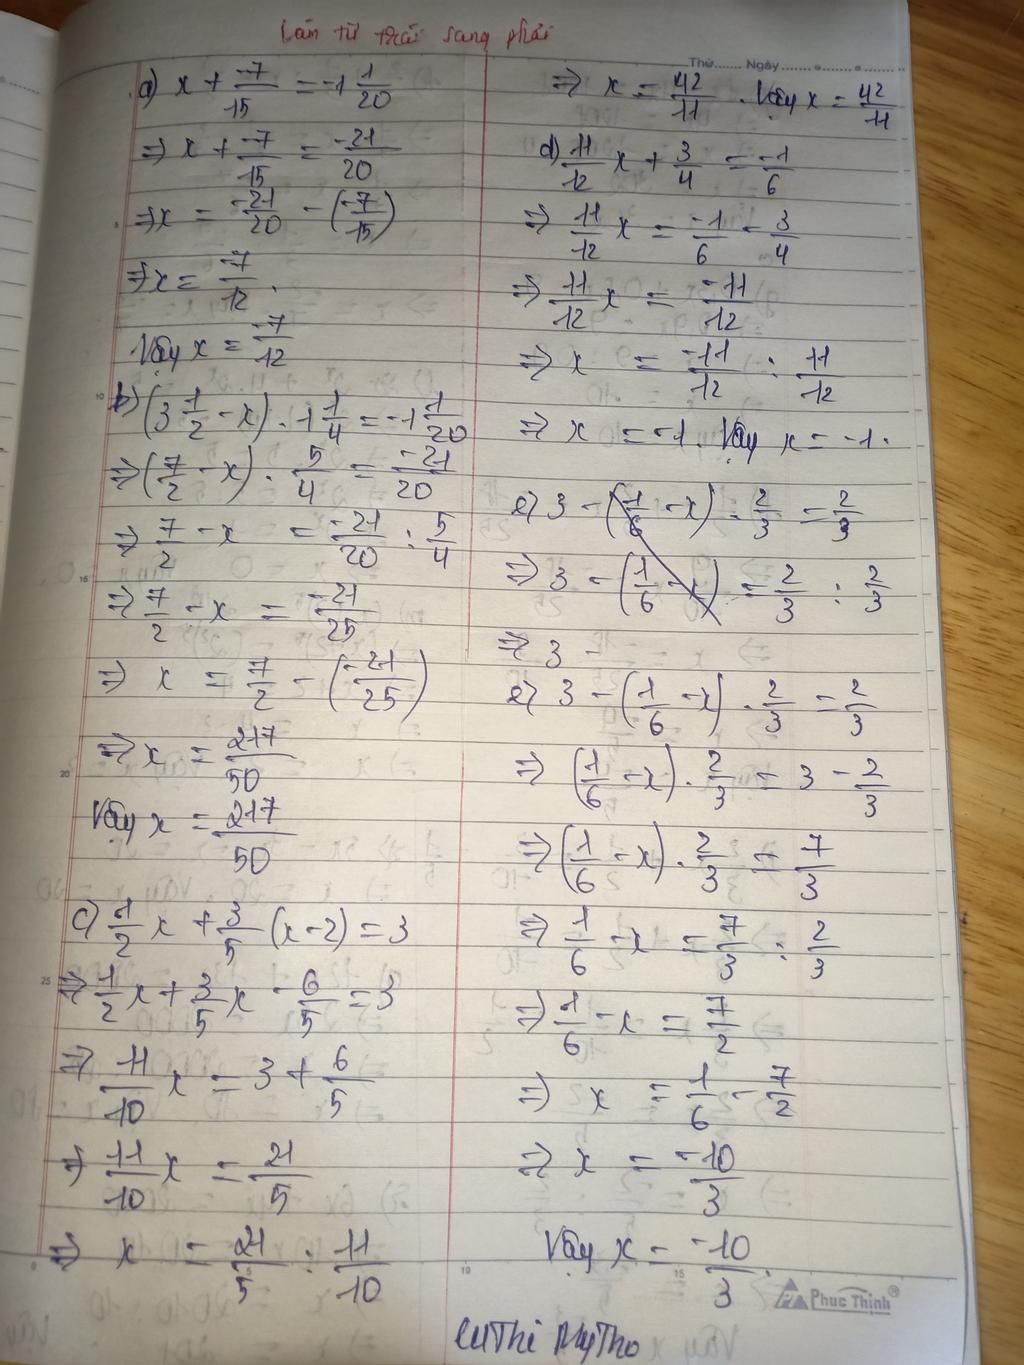 Làm từ trái sang phải
Thứ....... Ngày ...............
a) x + -7/15 = -1 1/20
=> x + -7/15 = -21/20
=> x = -21/20 - (-7/15)
=> x = -7/12.
Vậy x = -7/12
b) (3 1/2 - x) . 1 1/4 = -1 1/20
=> (7/2 - x) . 5/4 = -21/20
=> 7/2 - x = -21/20 : 5/4
=> 7/2 - x = -21/25
=> x = 7/2 - (-21/25)
=> x = 217/50
Vậy x = 217/50
c) 1/2 x + 3/5 (x - 2) = 3
=> 1/2 x + 3/5 x - 6/5 = 3
=> 11/10 x = 3 + 6/5
=> 11/10 x = 21/5
=> x = 21/5 : 11/10
=> x = 42/11 . Vậy x = 42/11
d) 11/12 x + 3/4 = -1/6
=> 11/12 x = -1/6 - 3/4
=> 11/12 x = -11/12
=> x = -11/12 : 11/12
=> x = -1. Vậy x = -1.
e) 3 - (1/6 - x) . 2/3 = 2/3
=> 3 - (1/6 - x) = 2/3 : 2/3
=> 3 -
e) 3 - (1/6 - x) . 2/3 = 2/3
=> (1/6 - x) . 2/3 = 3 - 2/3
=> (1/6 - x) . 2/3 = 7/3
=> 1/6 - x = 7/3 : 2/3
=> 1/6 - x = 7/2
=> x = 1/6 - 7/2
=> x = -10/3
Vậy x = -10/3.
Phuc Thinh®